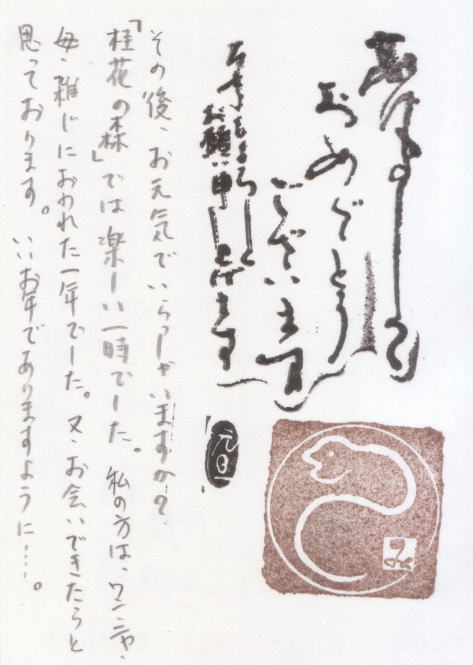 あけまして
おめでとう
ございます
本年もよろしく
お願い申し上げます
元旦
み
その後、お元気でいらっしゃいますか?
「桂花の森」では楽しい一時でした。私の方は、ワンニャ、
母、雑じにおわれた一年でした。又、お会いできたらと
思っております。いいお年でありますように…。